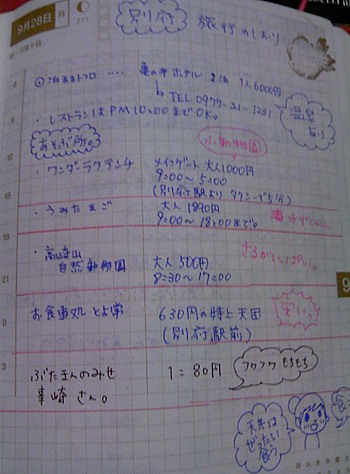 9月28日 月
271
別府 旅行のしおり
◎泊まるトコロ ‥‥ 亀の井ホテル 2泊 1人6000円
TEL 0977-21-1231
温泉あり
・レストランはPM10:00までOK。
あそぶ所。
小動物園
・ワンダーラクテンチ メインゲート 大人1000円
9:00〜5:00
(別府駅より タクシーで5分)
・うみたまご 大人1890円
9:00〜18:00まで。
・高崎山 自然動物園 大人500円
8:30〜17:00
さるがいっぱい。
お食事処 とよ常 630円の特上天丼
(別府駅前)
ぶたまんのみせ 1コ80円
韮崎さん。
フワフワ もちもち
天丼は ぜったい 食う